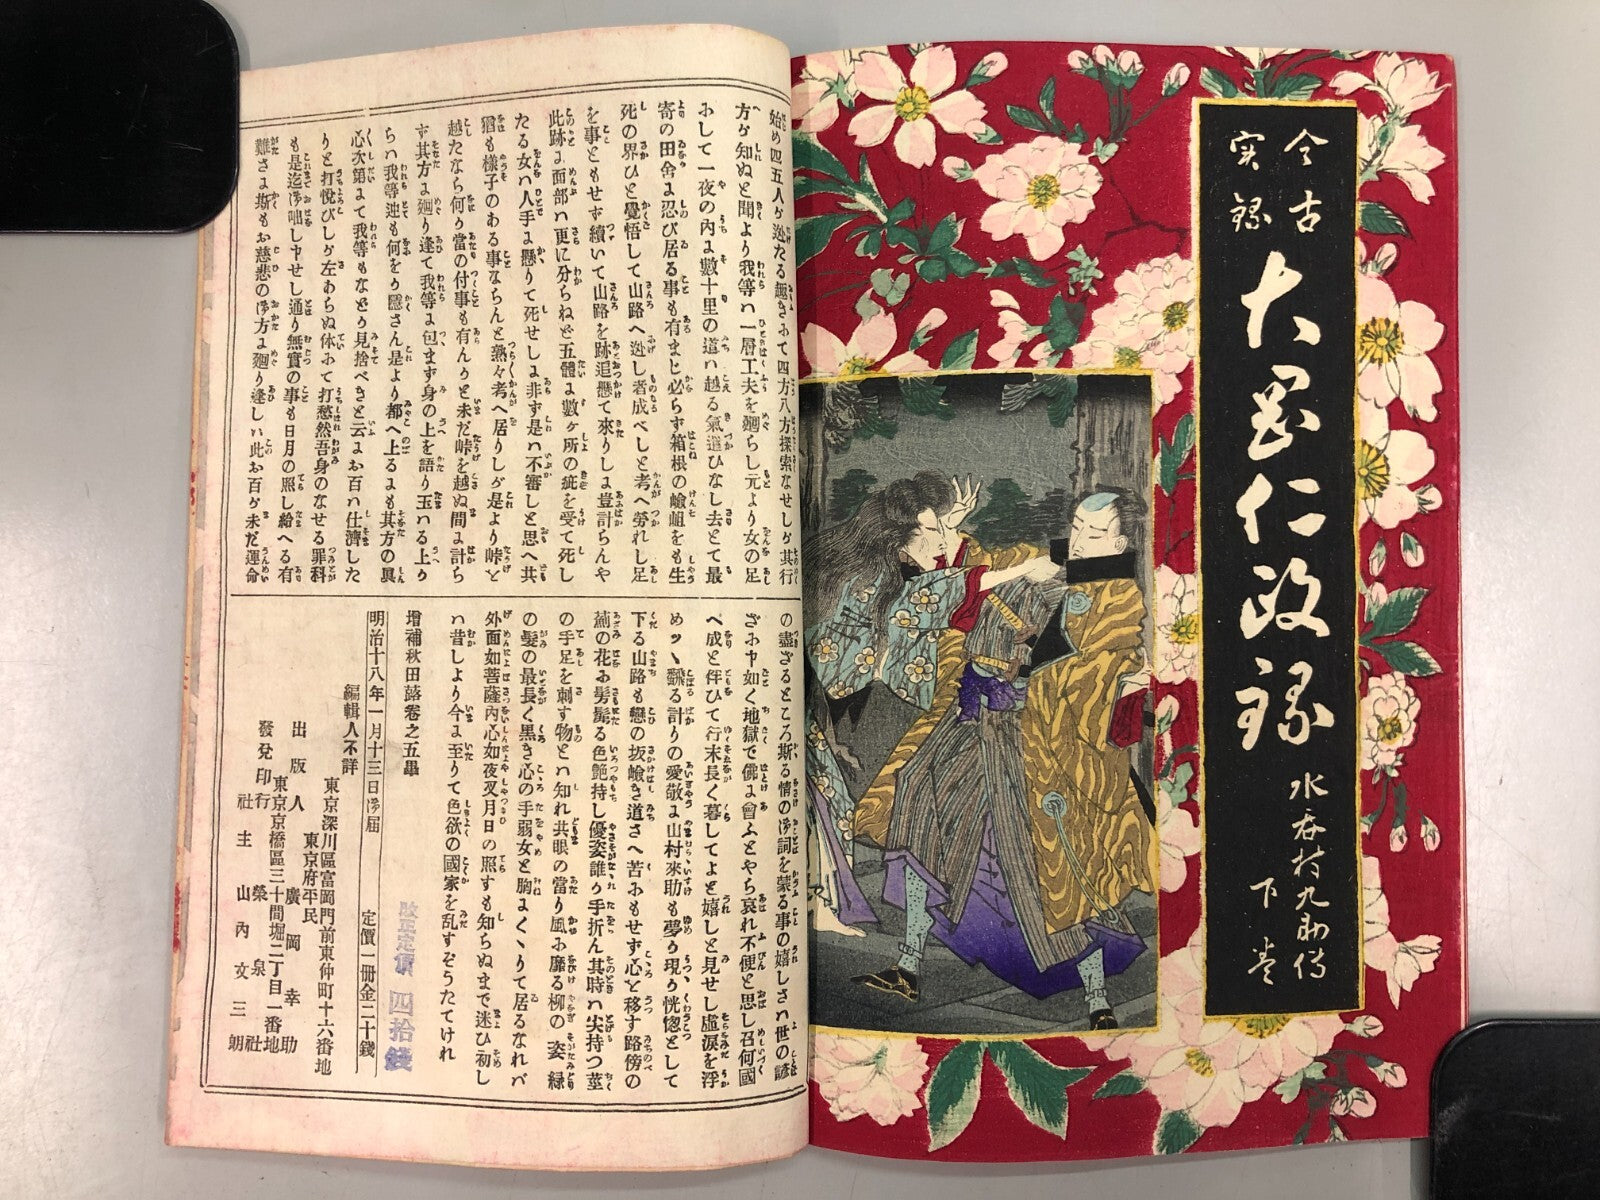 今古
実録
大岡仁政録
水呑村九助傳
下巻
始め四五人ヶ迯たる趣きふて四方八方探索なせしヶ其行
方ヶ知ぬと聞より我等ハ一層工夫を廻らし元より女の足
ふして一夜の内ょ數十里の道ハ越る氣遣ひなし去とて最
寄の田舎ょ忍び居る事も有まじ必らず箱根の嶮岨をも生
死の界ひと覺悟して山路へ迯し者成べしと考へ勞れし足
を事ともせず續いて山路を跡追懸て來りしょ豈計らんや
此跡ょ面部ハ更に分らねど五體ょ數ヶ所の疵を受て死し
たる女ハ人手ょ懸りて死せしょ非ず是ハ不審しと思へ共
猶も樣子のある事ならんと熟々考へ居りしヶ是より峠と
越たなら何り當の付事も有んりと未だ峠を越ぬ間ょ計ら
ず其方ょ廻り逢て我等ょ包まず身の上を語り玉ハる上り
らハ我等迚も何をり隱さん是より都へ上るょも其方の眞
心次第ょて我等もなどり見捨べきと云ょお百ハ仕濟した
りと打悅びしヶ左あらぬ体ふて打愁然吾身のなせる罪科
も是迄御咄し申せし通り無實の事も日月の照し給へる有
難さょ斯もお慈悲の御方ょ廻り逢しハ此お百ヶ未だ運命
の盡ざるところ斯る情の御詞を蒙る事の嬉しさハ世の諺
ざふ申如く地獄で佛ょ會ふとやら哀れ不便と思し召何國
へ成と伴ひて行末長く暮してよと嬉しと見せし虛淚を浮
めッヽ飜るヽ計りの愛敬ょ山村來助も夢り現り恍惚として
下る山路も戀の坂嶮き道さへ苦ふもせず心と移す路傍の
薊の花ふ男髷る色艶持し優姿誰り手折ん其時ハ尖持つ莖
の手足を刺す物とハ知れ共眼の當り風ふ靡る柳の姿緑
の髮の最長く黑き心の手弱女と胸ょくヽりて居るなれバ
外面如菩薩內心如夜叉月日の照すも知らぬまで迷ひ初し
ハ昔しより今ょ至りて色欲の國家を乱すぞうたてけれ
増補秋田蕗卷之五畢
明治十八年一月十三日御届
定價一冊金二十錢
改正定價 四拾錢
編輯人不詳
東京深川區富岡門前東仲町十六番地
東京府平民
出版人 廣岡幸助
東京京橋區三十間堀二丁目一番地
發兌印行社 榮泉社
社主 山內文三朗